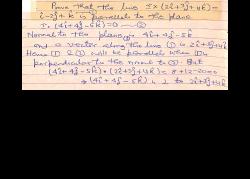 Prove that the line r̄ × (2î+3ĵ+4k̂) =
î-2ĵ+k̂ is parallel to the plane
r̄. (4î+4ĵ-5k̂)=0 — ②
Normal to the plane is 4î+4ĵ-5k̂
and a vector along the line ① is 2î+3ĵ+4k̂
Hence ① & ② will be parallel when ① is
perpendicular to the normal to ②. But
(4î+4ĵ-5k̂).(2î+3ĵ+4k̂) = 8+12-20=0
⇒ (4î+4ĵ-5k̂) is ⊥ to 2î+3ĵ+4k̂